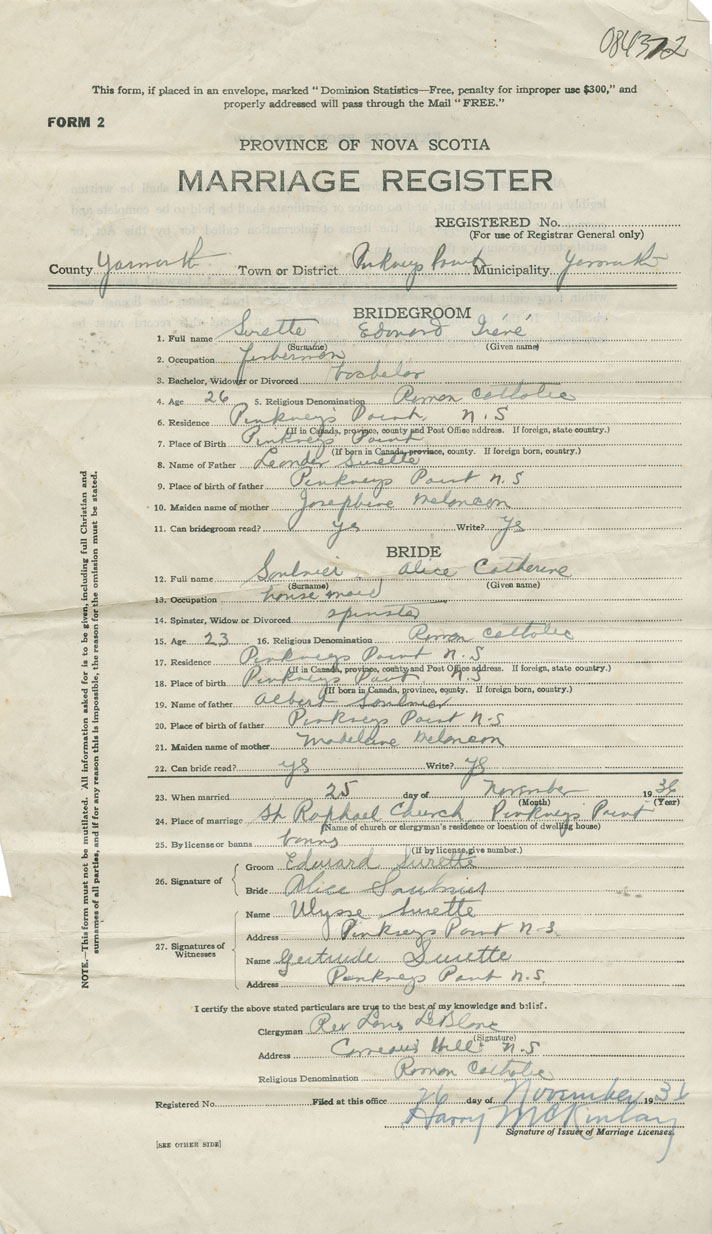 084372
This form, if placed in an envelope, marked “Dominion Statistics—Free, penalty for improper use $300,” and
properly addressed will pass through the Mail “FREE.”
FORM 2
PROVINCE OF NOVA SCOTIA
MARRIAGE REGISTER
REGISTERED No.
(For use of Registrar General only)
County Yarmouth Town or District Pinkneys Point Municipality Yarmouth
BRIDEGROOM
1. Full name Surette Edouard Iréné
(Surname) (Given name)
2. Occupation fisherman
3. Bachelor, Widower or Divorced bachelor
4. Age 26 5. Religious Denomination Roman Catholic
6. Residence Pinkneys Point, N.S
(If in Canada, province, county and Post Office address. If foreign, state country.)
7. Place of Birth Pinkneys Point
(If born in Canada, province, county. If foreign born, country.)
8. Name of Father Leander Surette
9. Place of birth of father Pinkneys Point N.S
10. Maiden name of mother Josephine Melancon
11. Can bridegroom read? yes Write? Yes
BRIDE
12. Full name Saulnier, Alice Catherine
(Surname) (Given name)
13. Occupation house maid
14. Spinster, Widow or Divorced spinster
15. Age 23 16. Religious Denomination Roman Catholic
17. Residence Pinkneys Point N.S
(If in Canada, province, county and Post Office address. If foreign, state country.)
18. Place of birth Pinkneys Point N.S
(If born in Canada, province, county. If foreign born, country.)
19. Name of father Albert Saulnier
20. Place of birth of father Pinkneys Point N.S
21. Maiden name of mother Madelaine Melancon
22. Can bride read? yes Write? Yes
23. When married 25 day of November 1936
(Month) (Year)
24. Place of marriage St Raphael Church Pinkneys Point
(Name of church or clergyman's residence or location of dwelling house)
25. By license or banns banns
(If by license, give number.)
26. Signature of
Groom Eduard Surette
Bride Alice Saulnier
27. Signatures of Witnesses
Name Ulysse Surette
Address Pinkneys Point N.S.
Name Gertrude Surette
Address Pinkneys Point N.S.
I certify the above stated particulars are true to the best of my knowledge and belief.
Clergyman Rev Louis LeBlanc
(Signature)
Address Comeau's Hill N.S
Religious Denomination Roman Catholic
Registered No. Filed at this office 26 day of November 1936
Harry McKinlay
Signature of Issuer of Marriage Licenses.
[SEE OTHER SIDE]
NOTE.—This form must not be mutilated. All information asked for is to be given, including full Christian and
surnames of all parties, and if for any reason this is impossible, the reason for the omission must be stated.